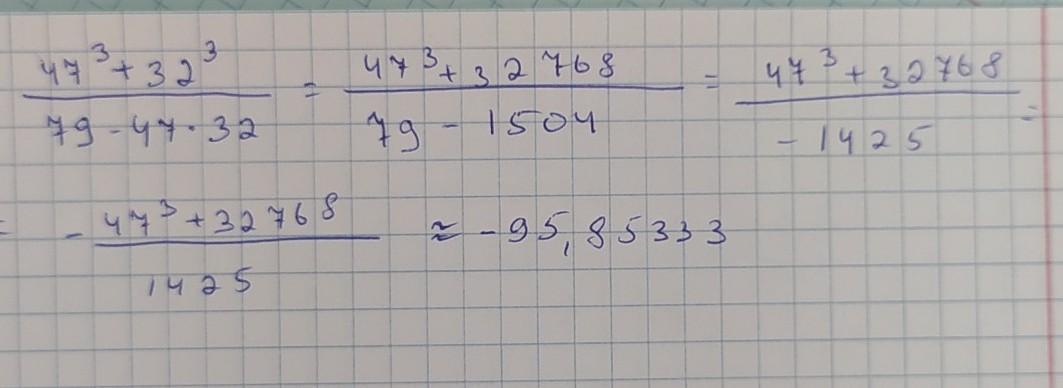 47³ + 32³ / 79 - 47 · 32 = 47³ + 32768 / 79 - 1504 = 47³ + 32768 / - 1425 =
= - 47³ + 32768 / 1425 ≈ - 95,85333